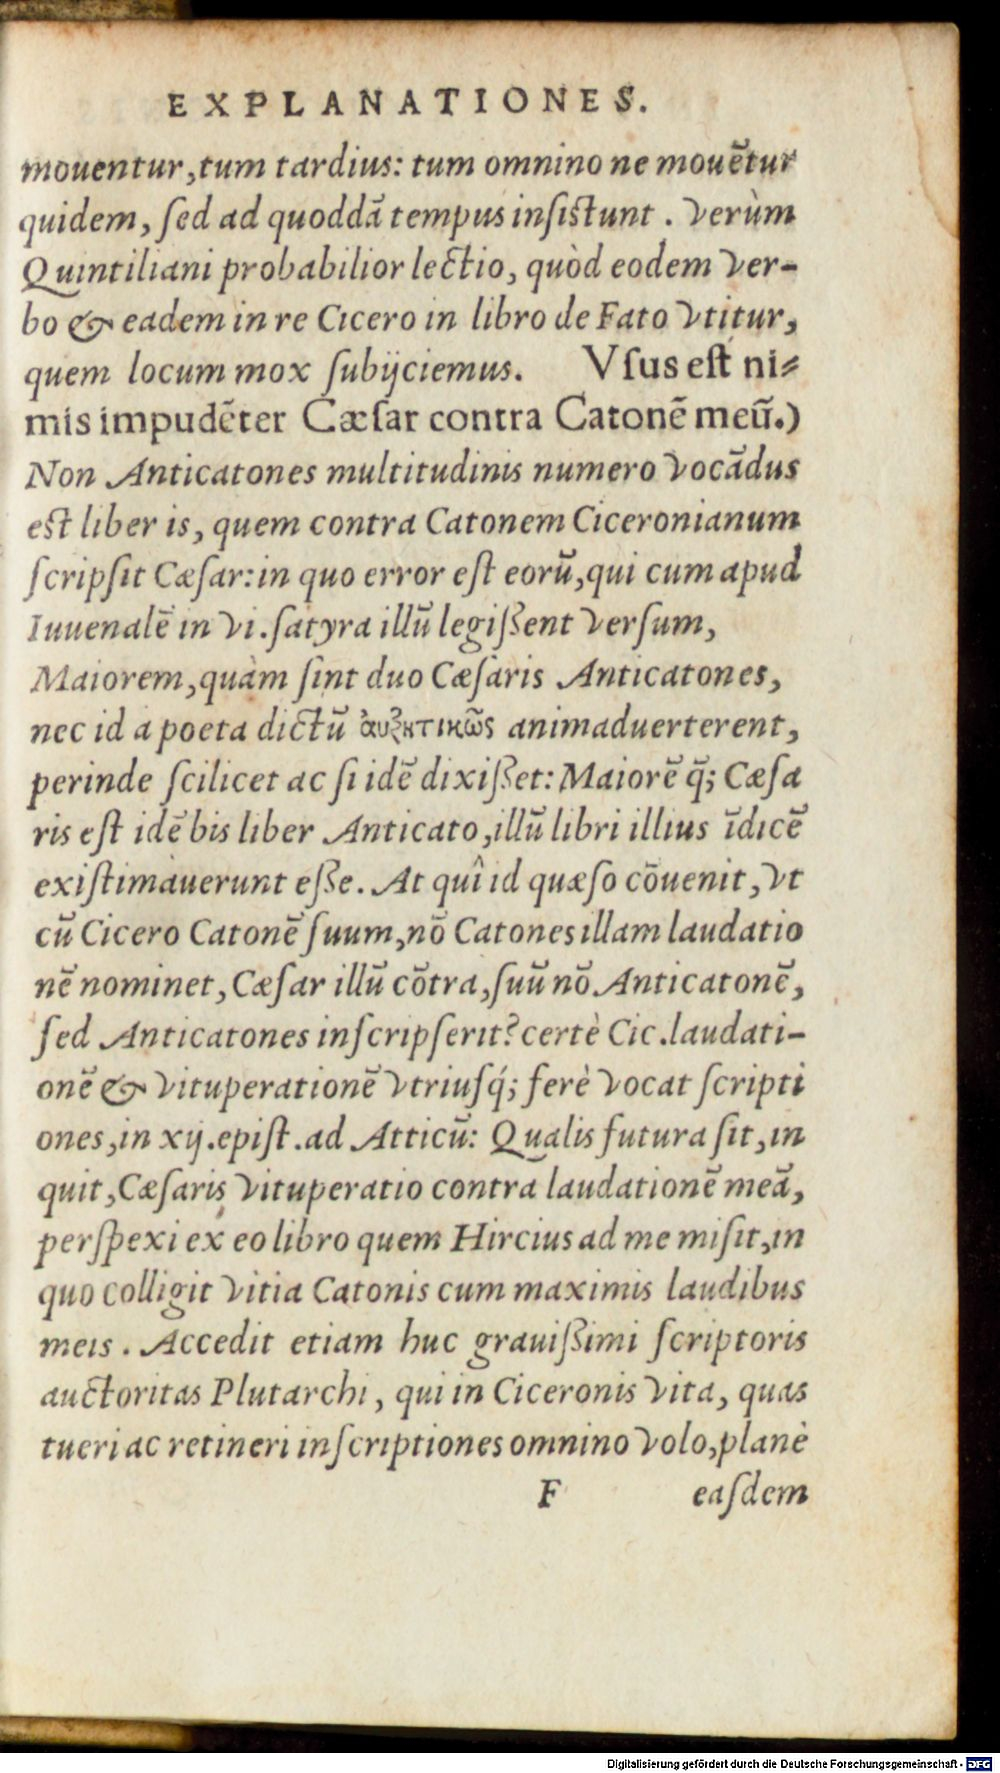 EXPLANATIONES.
mouentur, tum tardius: tum omnino ne mouẽtur
quidem, ſed ad quoddã tempus inſiſtunt. Verùm
Quintiliani probabilior lectio, quòd eodem Ver-
bo & eadem in re Cicero in libro de Fato Vtitur,
quem locum mox ſubijciemus. Vſus eſt ni-
mis impudẽter Cæſar contra Catonẽ meũ.)
Non Anticatones multitudinis numero Vocãdus
eſt liber is, quem contra Catonem Ciceronianum
ſcripſit Cæſar: in quo error eſt eorũ, qui cum apud
Iuuenalẽ in Vi. ſatyra illũ legißent Verſum,
Maiorem, quàm ſint duo Cæſaris Anticatones,
nec id a poeta dictũ ἀυξητικῶς animaduerterent,
perinde ſcilicet ac ſi idẽ dixißet: Maiorẽ q̃; Cæſa
ris eſt idẽ bis liber Anticato, illũ libri illius ĩdicẽ
existimauerunt eße. At quî id quæſo cõuenit, Vt
cũ Cicero Catonẽ ſuum, nõ Catones illam laudatio
nẽ nominet, Cæſar illũ cõtra, ſuũ nõ Anticatonẽ,
ſed Anticatones inſcripſerit? certè Cic. laudati-
onẽ & Vituperationẽ Vtriuſq́; ferè Vocat ſcripti
ones, in xij. epiſt. ad Atticũ: Qualis futura ſit, in
quit, Cæſaris Vituperatio contra laudationẽ meã,
perſpexi ex eo libro quem Hircius ad me miſit, in
quo colligit Vitia Catonis cum maximis laudibus
meis. Accedit etiam huc grauißimi ſcriptoris
auctoritas Plutarchi, qui in Ciceronis Vita, quas
tueri ac retineri inſcriptiones omnino Volo, planè
F easdem
Digitalisierung gefördert durch die Deutsche Forschungsgemeinschaft - DFG